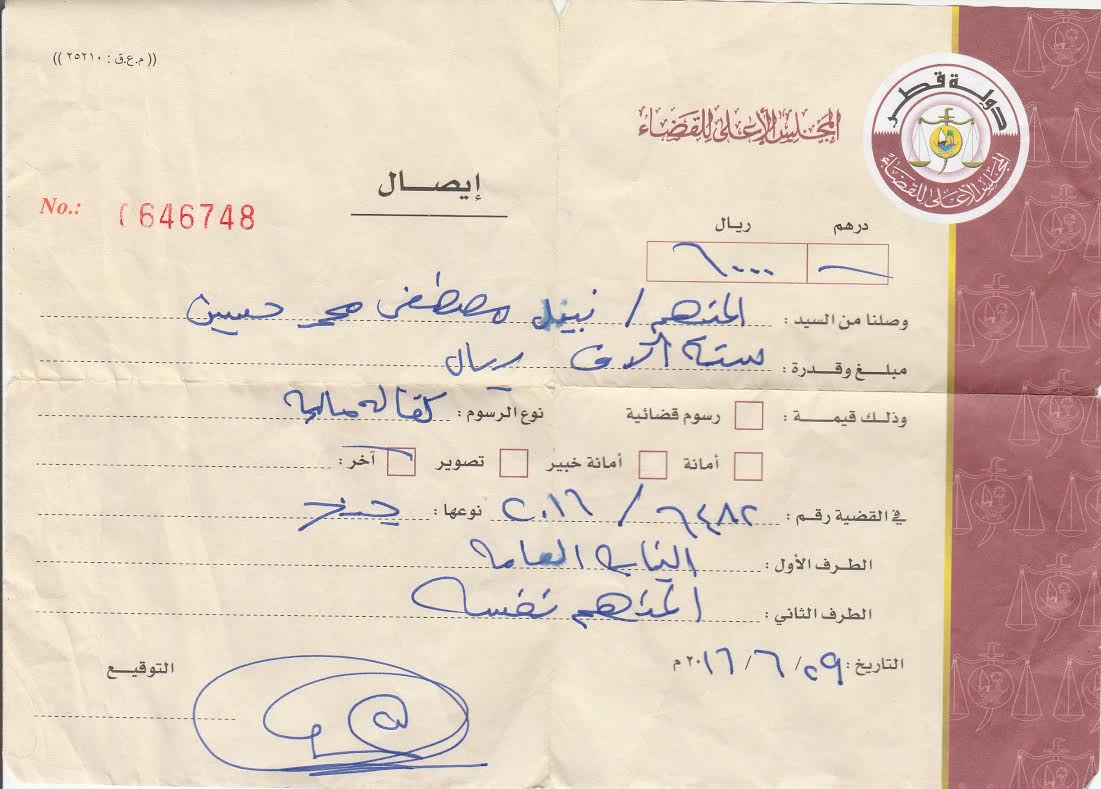 (( م.ع.ق : ٢٥٢١٠ ))
دولة قطر
المجلس الأعلى للقضاء
المجلس الأعلى للقضاء
إيصال
No.: 0646748
درهم ريال
— ٦٠٠٠
وصلنا من السيد : المتهم / نبيل مصطفى محمد حسين
مبلغ وقدرة : ستة آلاف ريال
وذلك قيمة : رسوم قضائية نوع الرسوم : كفالة مالية
أمانة أمانة خبير تصوير آخر :
في القضية رقم : ٦٤٨٢ / ٢٠١٦ نوعها :
الطرف الأول : النيابة العامة
الطرف الثاني : المتهم نفسه
التاريخ : ٢٩ / ٦ / ٢٠١٦ م
التوقيع